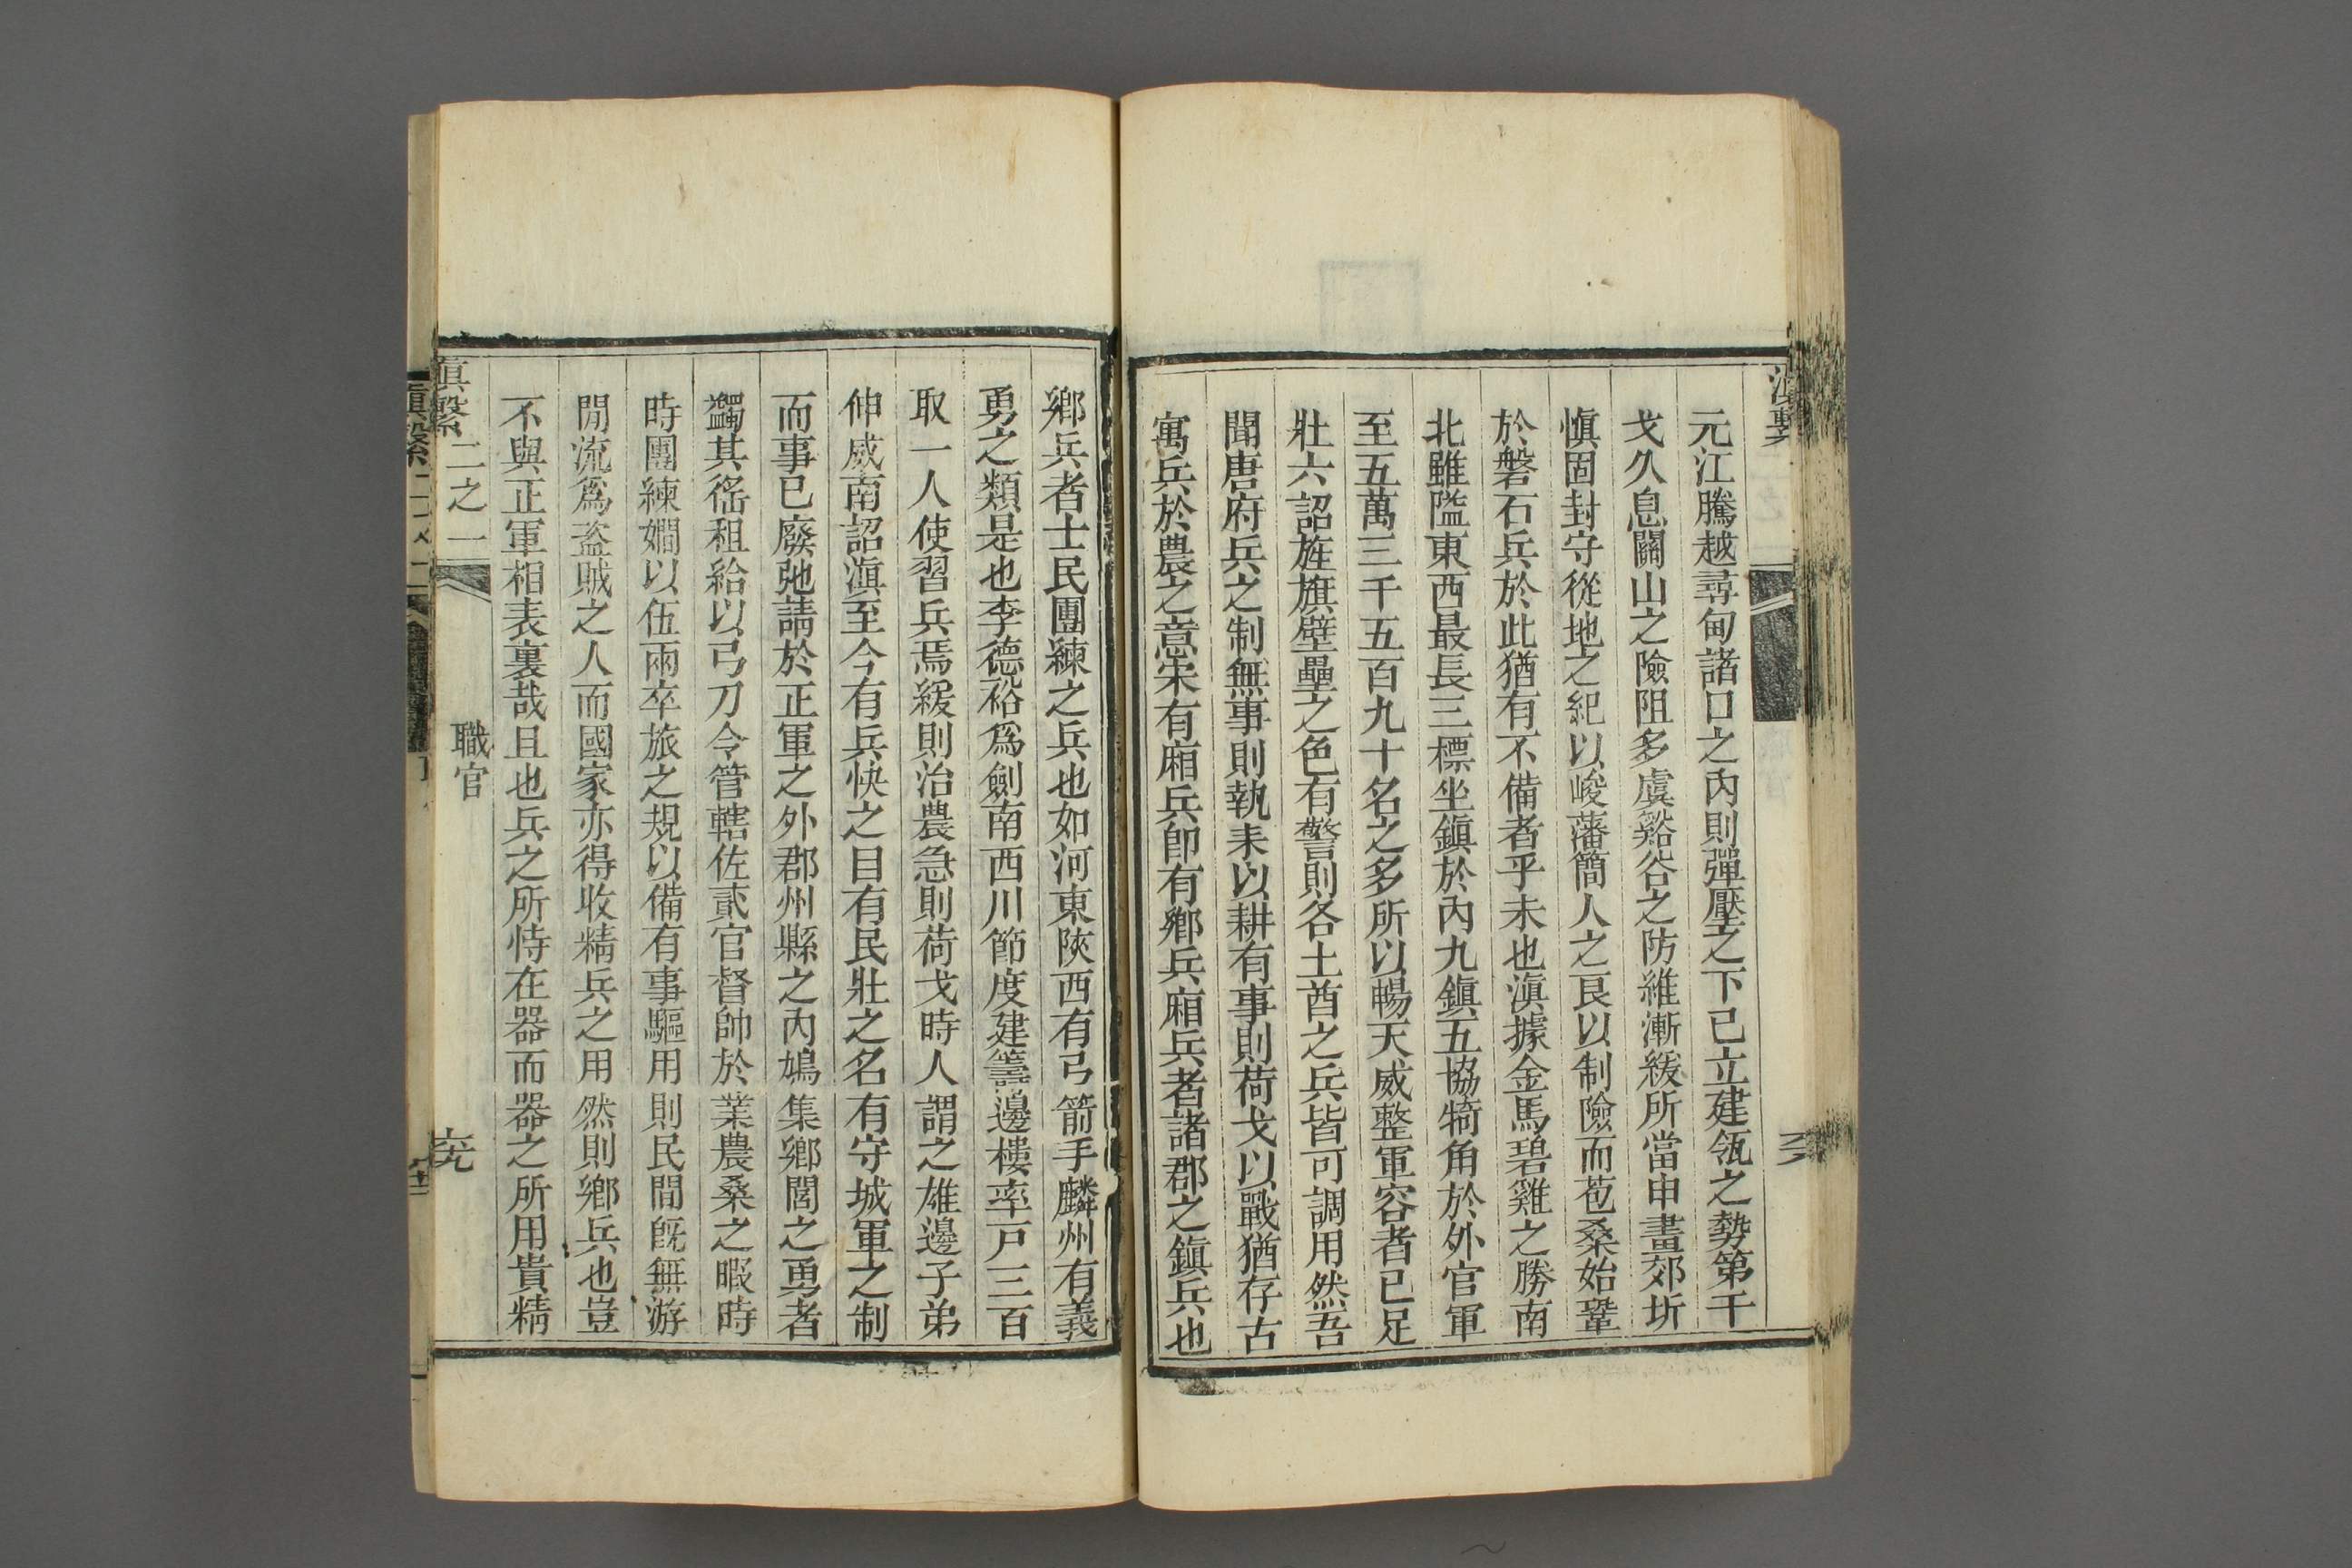 滇繫
元江騰越尋甸諸口之內則彈壓之下已立建瓴之勢第干
戈久息關山之險阻多虞谿谷之防維漸緩所當申畫郊圻
慎固封守從地之紀以峻藩簡人之艮以制險而苞桑始鞏
於磐石兵於此猶有不備者乎未也滇據金馬碧雞之勝南
北雖隘東西最長三標坐鎮於內九鎮五協犄角於外官軍
至五萬三千五百九十名之多所以暢天威整軍容者已足
壯六詔旌旗壁壘之色有警則各土酋之兵皆可調用然吾
聞唐府兵之制無事則執耒以耕有事則荷戈以戰猶存古
寓兵於農之意宋有廂兵卽有鄉兵廂兵者諸郡之鎮兵也
鄉兵者士民團練之兵也如河東陝西有弓箭手麟州有義
勇之類是也李德裕爲劍南西川節度建籌邊樓率戸三百
取一人使習兵焉緩則治農急則荷戈時人謂之雄邊子弟
伸威南詔滇至今有兵快之目有民壯之名有守城軍之制
而事已廢弛請於正軍之外郡州縣之內鳩集鄉閭之勇者
蠲其徭租給以弓刀令管轄佐貳官督帥於業農桑之暇時
時團練嫺以伍兩卒旅之規以備有事驅用則民間旣無游
閒流爲盜賊之人而國家亦得收精兵之用然則鄉兵也豈
不與正軍相表裏哉且也兵之所恃在器而器之所用貴精
滇繫 二之一 職官 六九